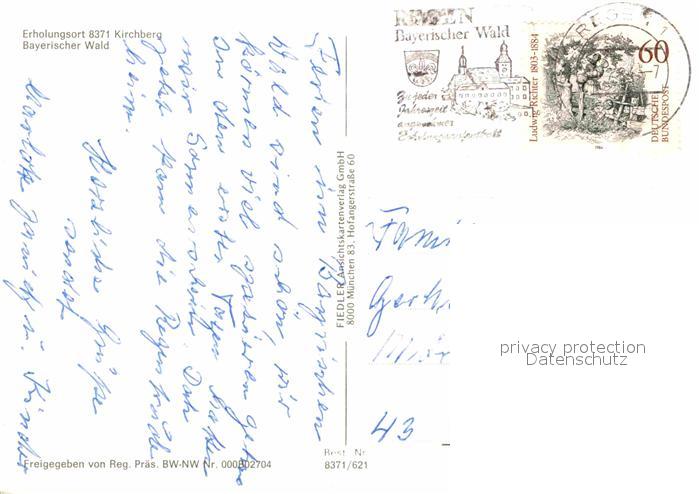 Erholungsort 8371 Kirchberg
Bayerischer Wald
REGEN
Bayerischer Wald
Zu jeder
Jahreszeit
angenehmer
Erholungsaufenthalt
REGEN 1
Ludwig Richter 1803-1884
60
DEUTSCHE
BUNDESPOST
1984
Ferien im Bayrischen
Wald sind schön, wir
können viel spazieren gehen
an den ersten Tagen hatten
wir Sonnenschein. Dann
kam die Regen
Herzliche Grüße
sendet
u. Kinder
FIEDLER Ansichtskartenverlag GmbH
8000 München 83, Hofangerstraße 60
Fami
43
privacy protection
Datenschutz
Freigegeben von Reg. Präs. BW-NW Nr. 000B02704
Best. Nr.
8371/621